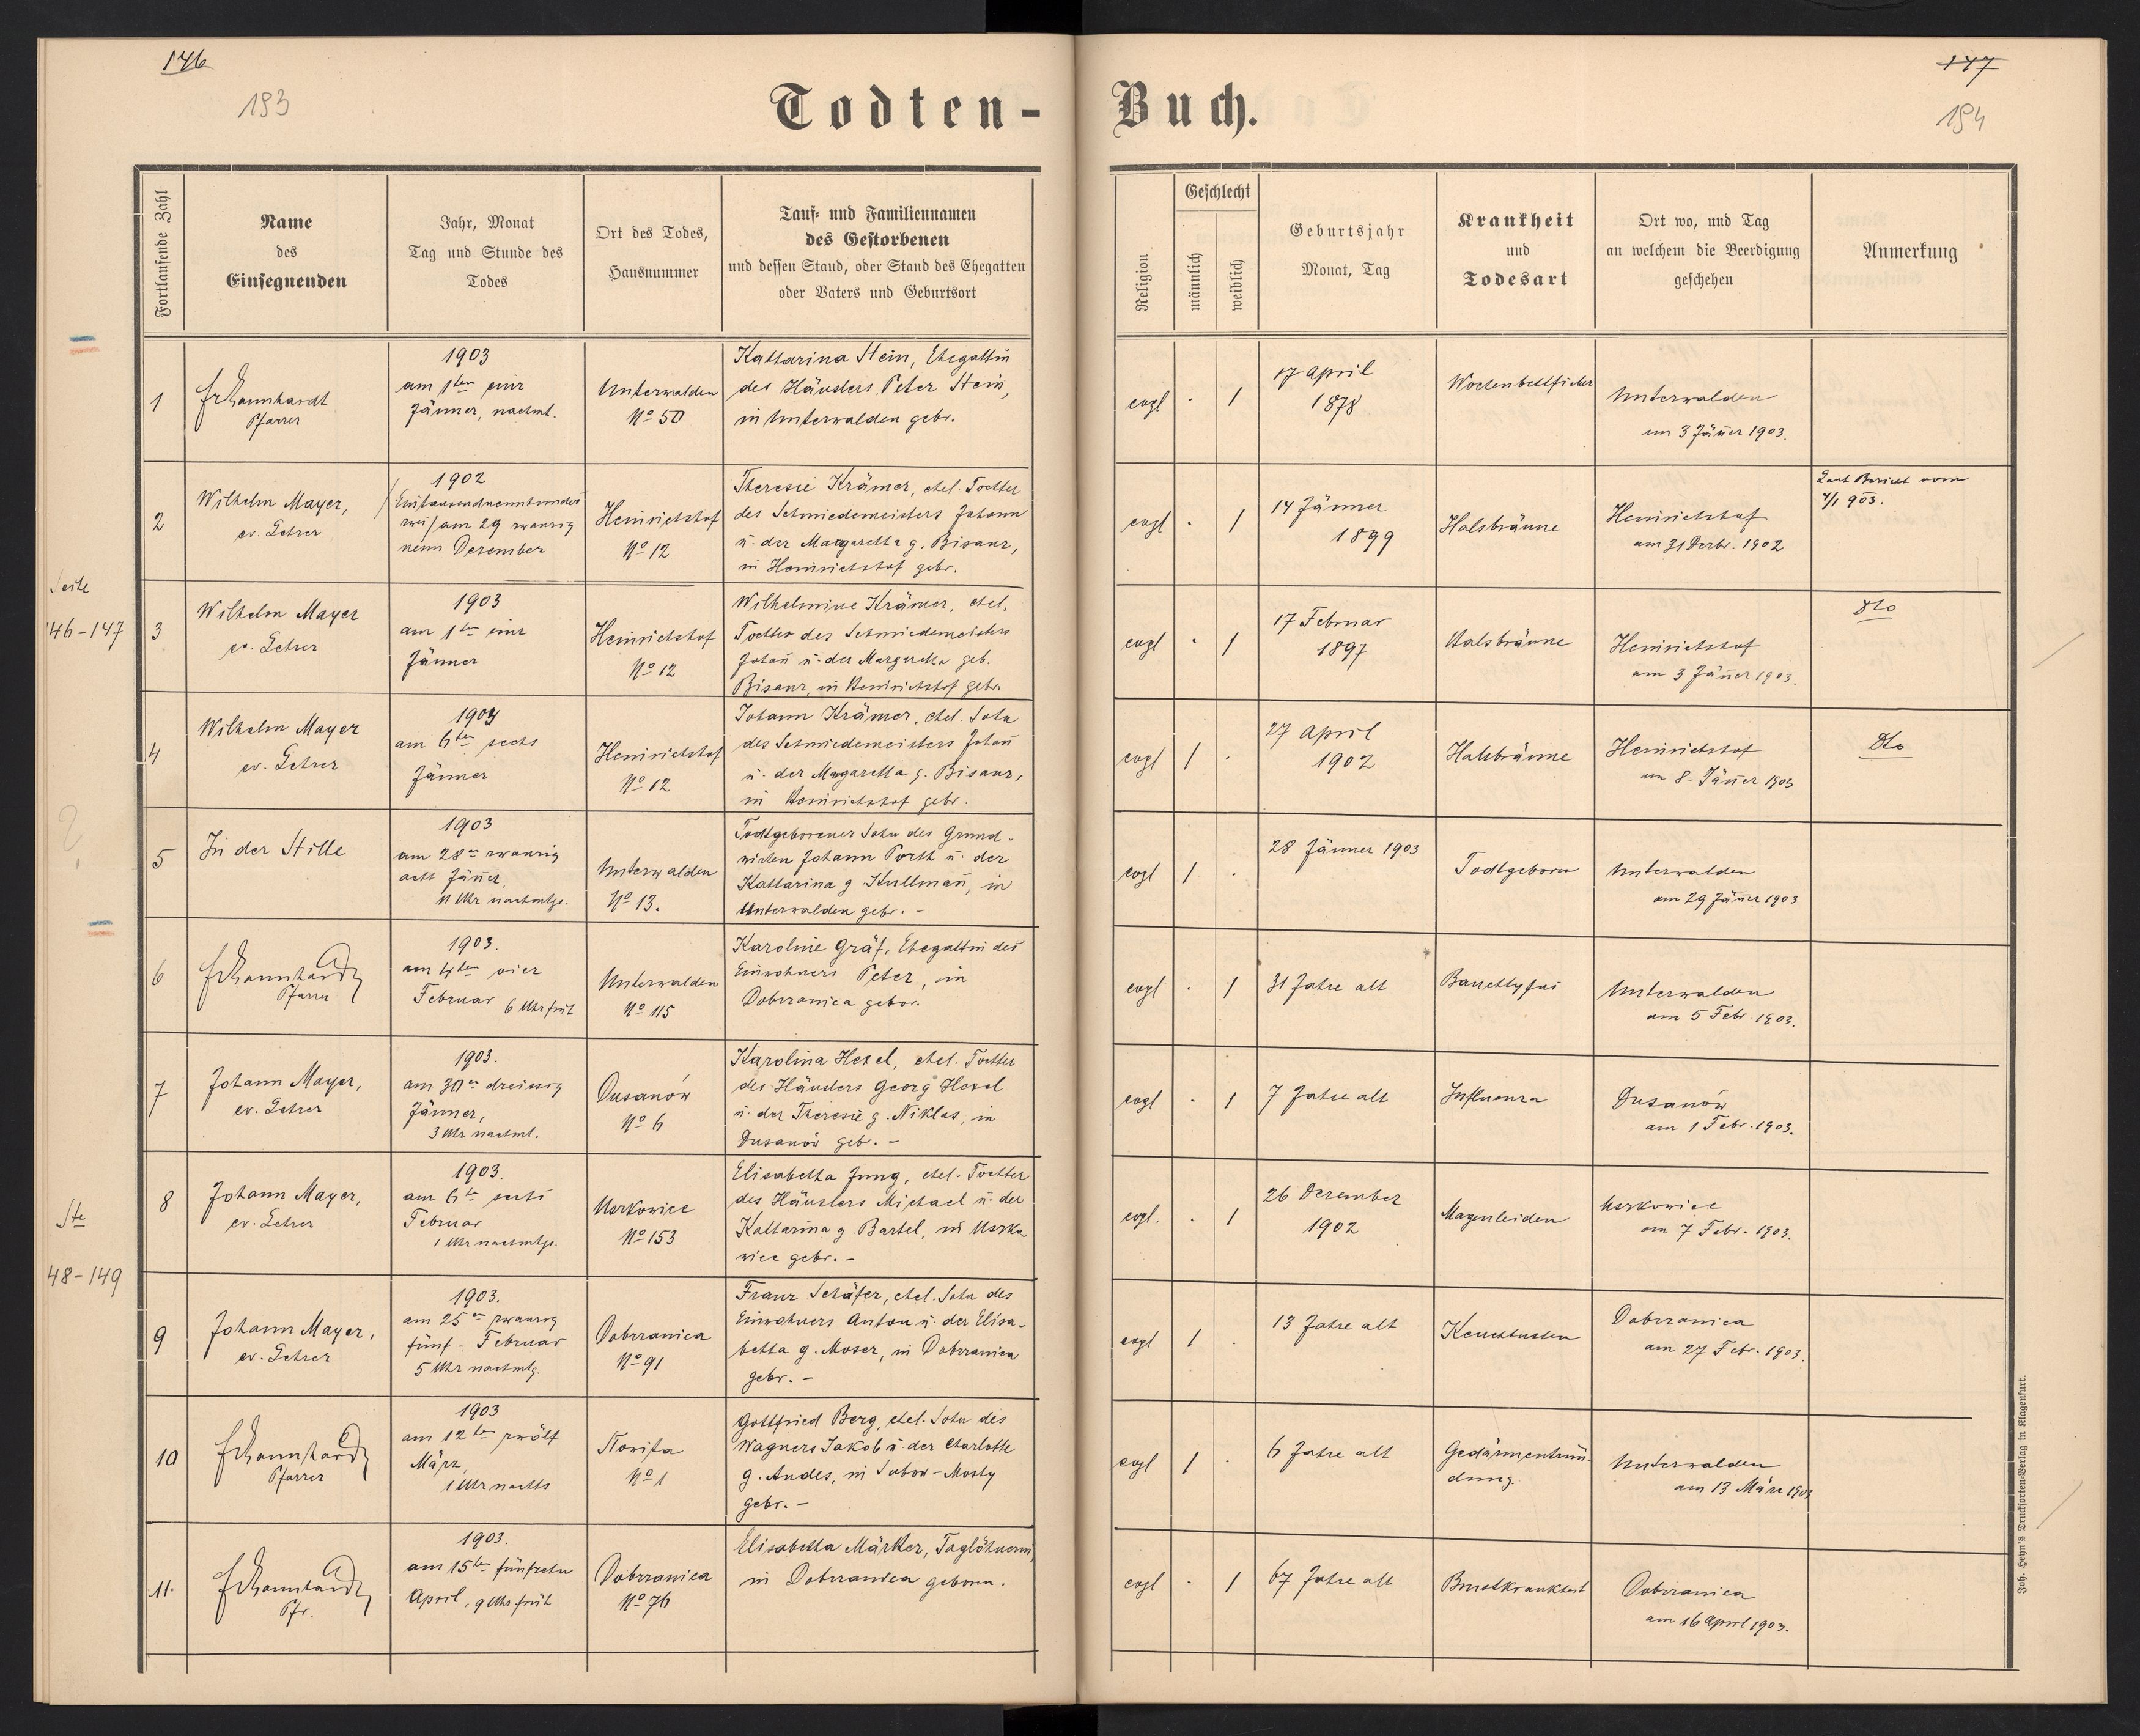 146
193
Todten-
Fortlaufende Zahl
Name
des
Einsegnenden
Jahr, Monat
Tag und Stunde des
Todes
Ort des Todes,
Hausnummer
Tauf= und Familiennamen
des Gestorbenen
und dessen Stand, oder Stand des Ehegatten
oder Vaters und Geburtsort
1
Pfarrer
1903
am 1ten eins
Jänner, nachmt.
Unterwalden
No 50
Katharina Stein, Ehegattin
des Häuslers Peter Stein,
in Unterwalden gebr.
2
Wilhelm Mayer,
ev. Lehrer
1902
/Eintausendneunhundert
zwei/ am 29 zwanzig
neun Dezember
Heinrichshof
No 12
Theresie Krämer, ehel. Tochter
des Schmiedemeisters Johann
u. der Margaretha g. Bisanz,
in Heinrichshof gebr.
3
Wilhelm Mayer
ev. Lehrer
1903
am 1ten eins
Jänner
Heinrichshof
No 12
Wilhelmine Krämer, ehel.
Tochter des Schmiedemeisters
Johañ u. der Margaretha geb.
Bisanz, in Heinrichshof gebr.
4
Wilhelm Mayer
ev. Lehrer
1903
am 6ten sechs
Jänner
Heinrichshof
No 12
Johann Krämer, ehel. Sohn
des Schmiedemeisters Johañ
u. der Magaretha g. Bisanz,
in Heinrichshof gebr.
5
In der Stille
1903
am 28en zwanzig
acht Jäñer,
11 Uhr nachmtgs.
Unterwalden
No 13.
Todtgeborener Sohn des Grund-
wirten Johann Porth u. der
Katharina g Kullmañ, in
Unterwalden gebr. -
6
Pfarrer
1903.
am 4ten vier
Februar 6 Uhr früh
Unterwalden
No 115
Karoline Gräf, Ehegattin des
Einwohners Peter, in
Dobrzanica gebor.
7
Johann Mayer,
ev. Lehrer
1903.
am 30en dreissig
Jänner,
3 Uhr nachmt.
Dusanów
No 6
Karolina Hexel, ehel. Tochter
des Häuslers Georg Hexel
u. der Theresie g. Niklas, in
Dusanów geb. -
8
Johann Mayer,
ev. Lehrer
1903.
am 6ten sechs
Februar
1 Uhr nachmtgs.
Uszkowice
No 153
Elisabetha Jung, ehel. Tochter
des Häuslers Michael u. der
Katharina g. Bartel, in Uszko
wice gebr. -
9
Johann Mayer,
ev. Lehrer
1903.
am 25en zwanzig
fünf - Februar
5 Uhr nachmtg.
Dobrzanica
No 91
Franz Schäfer, ehel. Sohn des
Einwohners Anton u. der Elisa-
betha g. Moser, in Dobrzanica
gebr. -
10
Pfarrer
1903
am 12ten zwölf
März,
1 Uhr nachts
Nowita
No 1
Gottfried Berg, ehel. Sohn des
Wagners Jakob u. der Charlotte
g. Andes, in -Mosty
gebr. -
11.
Pfr.
1903.
am 15ten fünfzehn
April, 9 Uhr früh
Dobrzanica
No 76
Elisabetha Märker, Taglöhnerin,
in Dobrzanica geboren.
Seite
146-147
Ste
148-149
147
194
Buch.
Religion
Geschlecht
männlich
weiblich
Geburtsjahr
Monat, Tag
Krankheit
und
Todesart
Ort wo, und Tag
an welchem die Beerdigung
geschehen
Anmerkung
evgl · 1
17 April
1878
Wochenbettfieber
Unterwalden
am 3 Jäñer 1903.
evgl · 1
14 Jänner
1899
Halsbräune
Heinrichshof
am 31 Dezbr. 1902
Laut Bericht vom
7/1 903.
evgl · 1
17 Februar
1897
Halsbräune
Heinrichshof
am 3 Jäñer 1903.
Dto
evgl 1 ·
27 April
1902
Halsbräune
Heinrichshof
am 8 - Jäñer 1903
Dto
evgl 1 ·
28 Jänner 1903
Todtgeboren
Unterwalden
am 29 Jäñer 1903
evgl · 1
31 Jahre alt
Bauchtyfus
Unterwalden
am 5 Febr. 1903.
evgl · 1
7 Jahre alt
Influenza
Dusanów
am 1 Febr. 1903.
evgl. · 1
26 Dezember
1902
Magenleiden
Uszkowice
am 7 Febr. 1903.
evgl 1 ·
13 Jahre alt
Keuchhusten
Dobrzanica
am 27 Febr. 1903.
evgl 1 ·
6 Jahre alt
Gedärmentzün-
dung.
Unterwalden
am 13 März 1903
evgl · 1
67 Jahre alt
Brustkrankheit
Dobrzanica
am 16 April 1903.
Joh. Heyn's Drucksorten-Verlag in Klagenfurt.